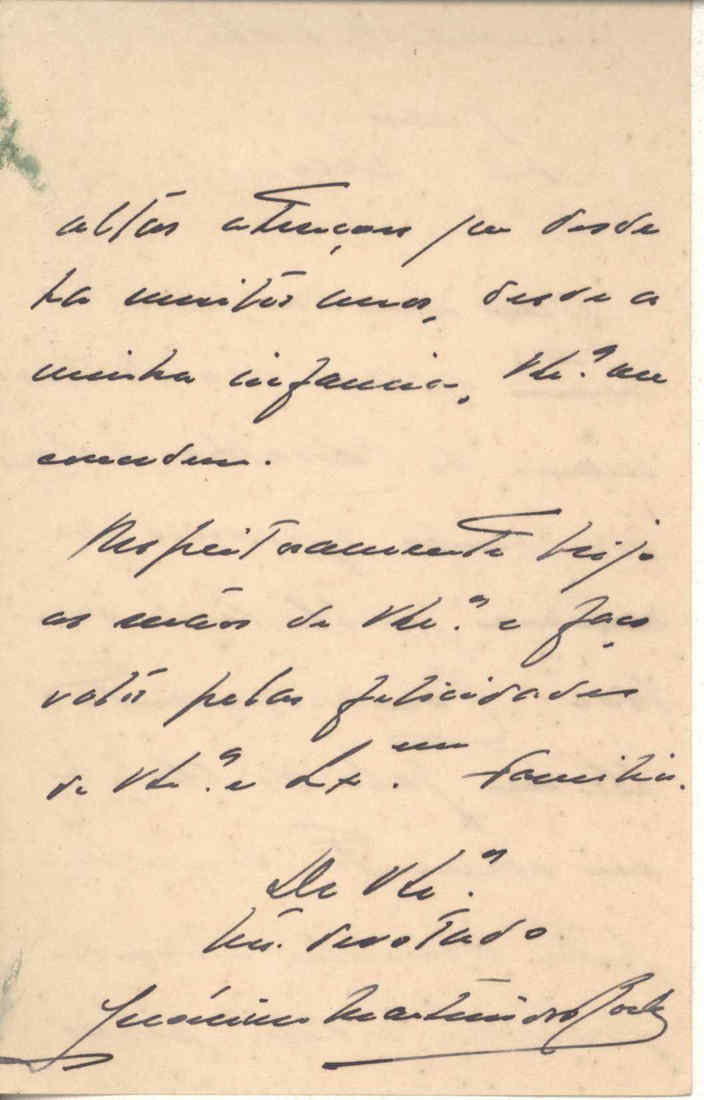 altas atenções que desde
ha muitos anos, desde a
minha infancia, V.Ex.ª me
concedeu.
Respeitosamente beijo
as mãos de V.Ex.ª e faço
votos pelas felicidades
de V.Ex.ª e Ex.ma Familia.
De V.Ex.ª
devotado
Martins da